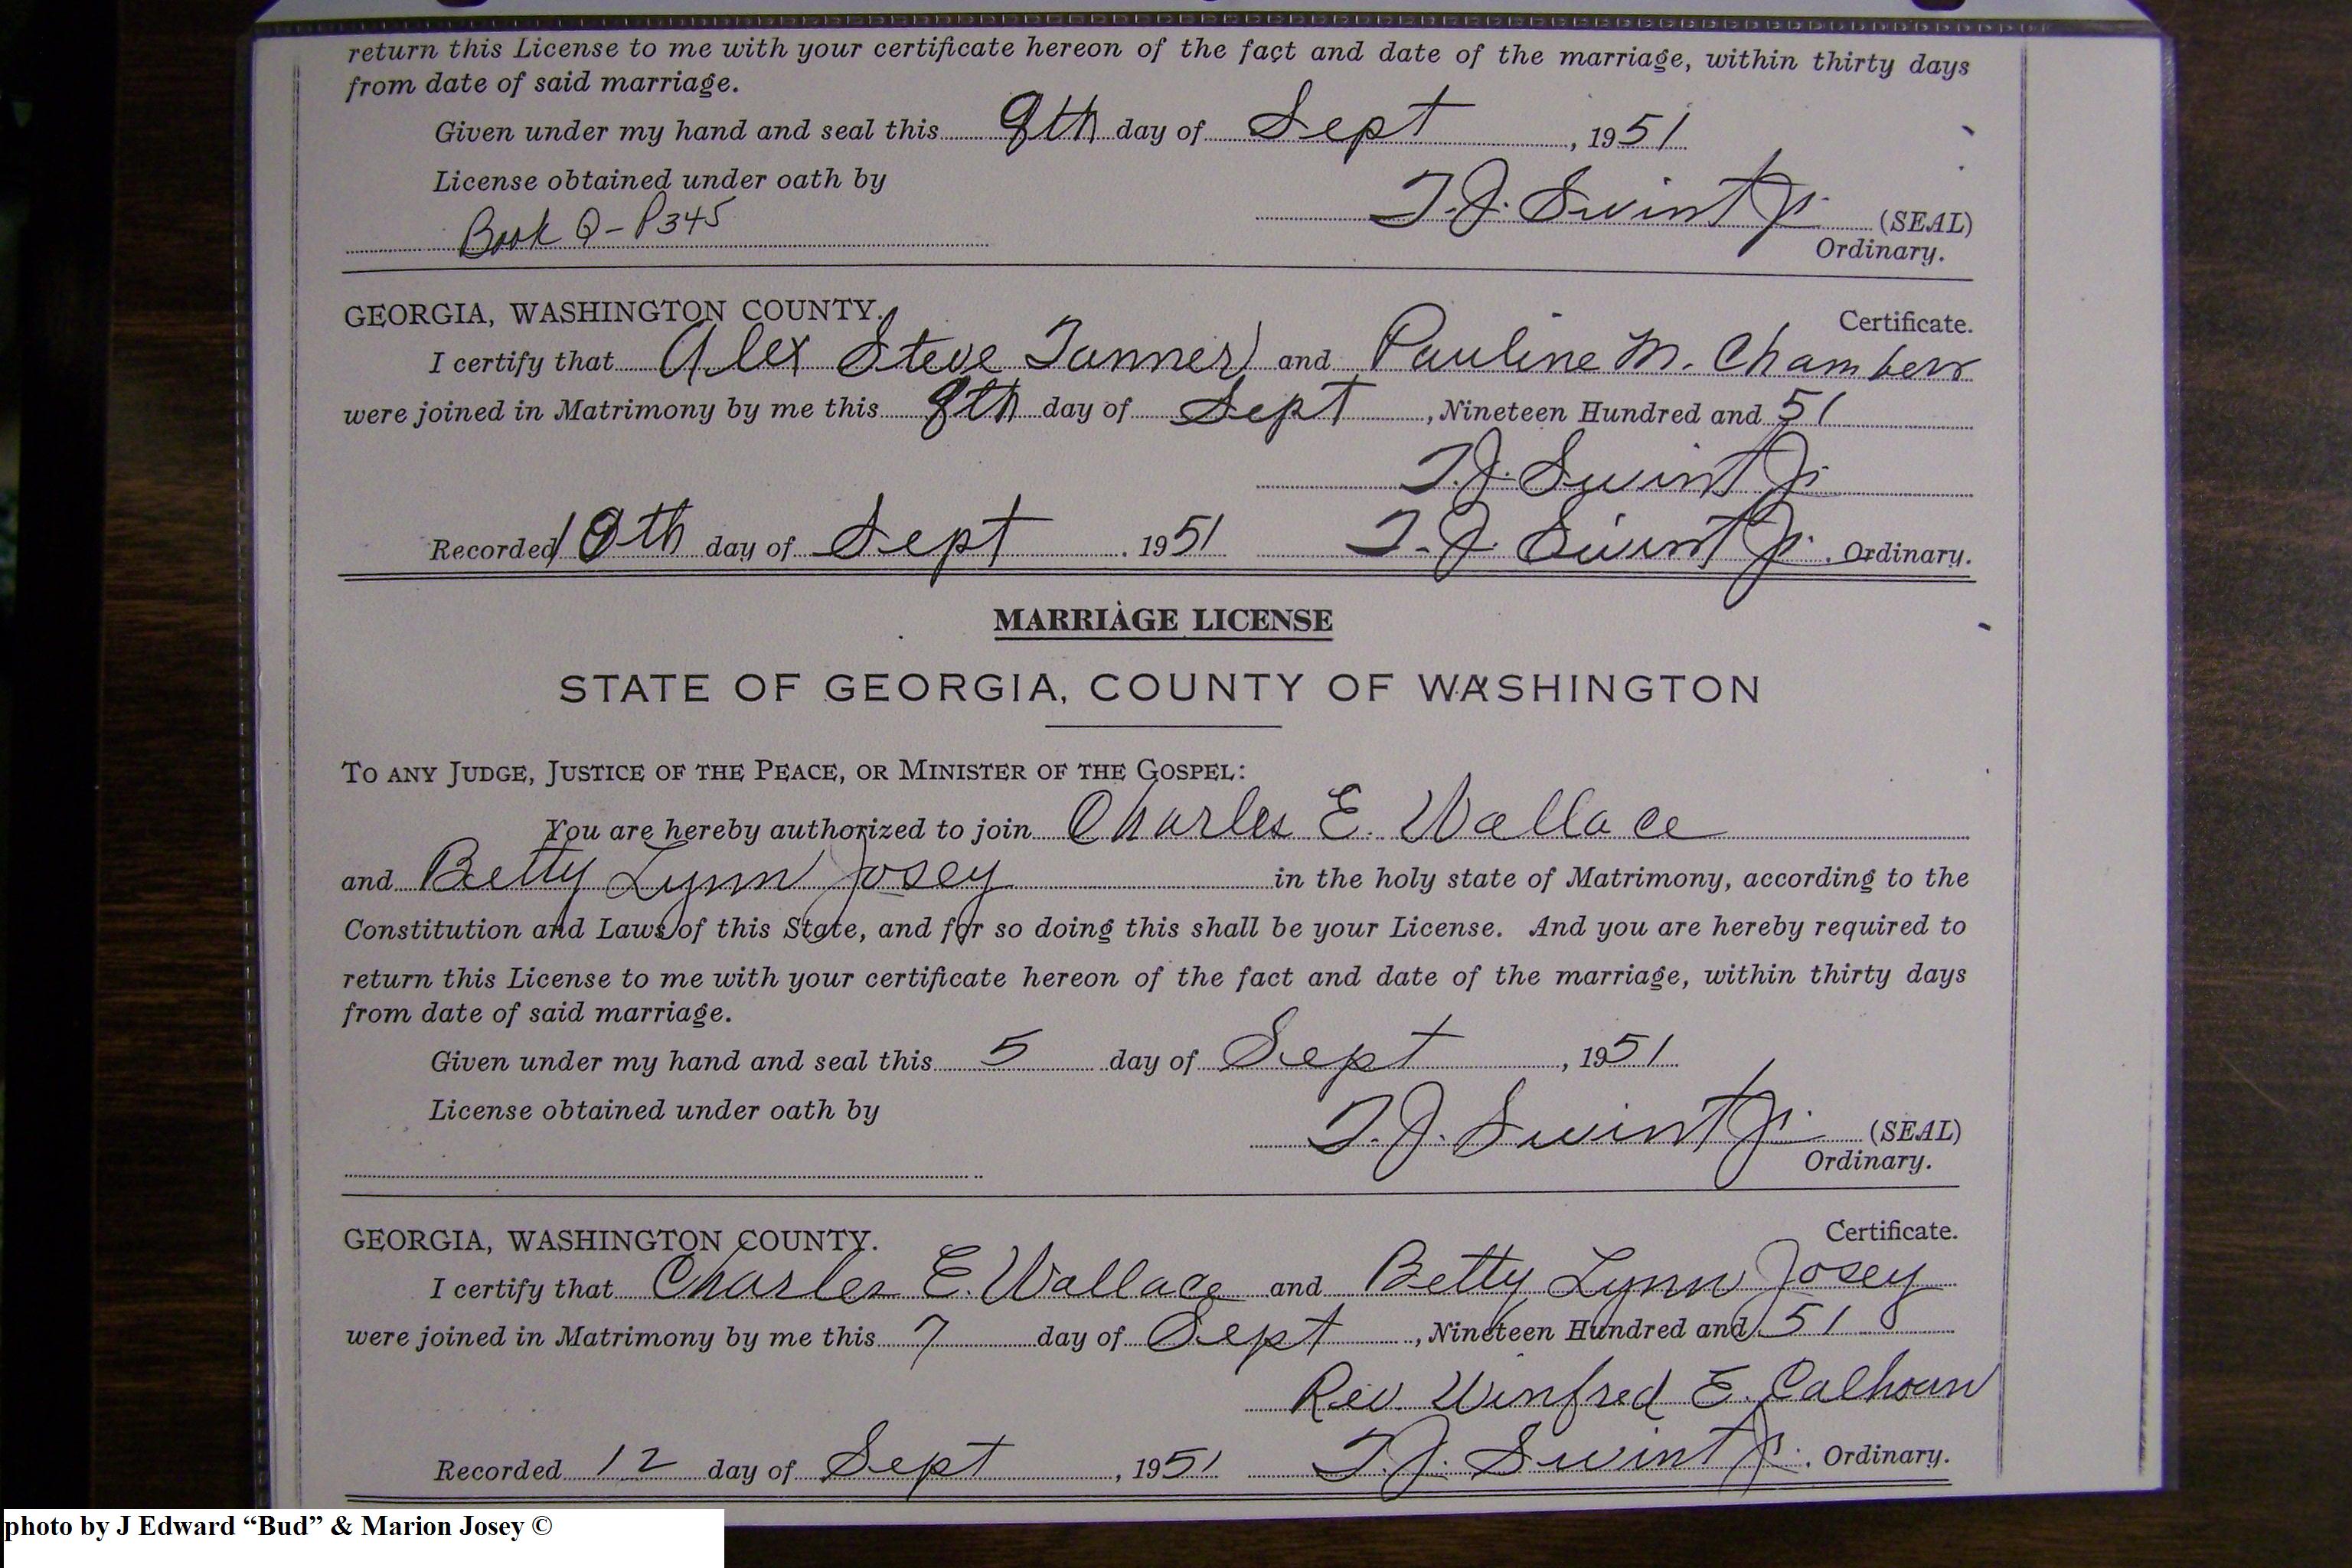 return this License to me with your certificate hereon of the fact and date of the marriage, within thirty days
from date of said marriage.
Given under my hand and seal this 8th day of Sept, 1951
License obtained under oath by
T.J. Swint Jr. (SEAL)
Book Q-P345
Ordinary.
GEORGIA, WASHINGTON COUNTY. Certificate.
I certify that Alex Steve Tanner and Pauline M. Chambers
were joined in Matrimony by me this 8th day of Sept, Nineteen Hundred and 51
T.J. Swint Jr.
Recorded 10th day of Sept. 1951 T.J. Swint Jr. Ordinary.
MARRIAGE LICENSE
STATE OF GEORGIA, COUNTY OF WASHINGTON
TO ANY JUDGE, JUSTICE OF THE PEACE, OR MINISTER OF THE GOSPEL:
You are hereby authorized to join Charles E. Wallace
and Betty Lynn Josey in the holy state of Matrimony, according to the
Constitution and Laws of this State, and for so doing this shall be your License. And you are hereby required to
return this License to me with your certificate hereon of the fact and date of the marriage, within thirty days
from date of said marriage.
Given under my hand and seal this 5 day of Sept, 1951
License obtained under oath by
T.J. Swint Jr. (SEAL)
Ordinary.
GEORGIA, WASHINGTON COUNTY. Certificate.
I certify that Charles E. Wallace and Betty Lynn Josey
were joined in Matrimony by me this 7 day of Sept, Nineteen Hundred and 51
Rev. Winfred E. Calhoun
Recorded 12 day of Sept, 1951 T.J. Swint Jr. Ordinary.
photo by J Edward “Bud” & Marion Josey ©